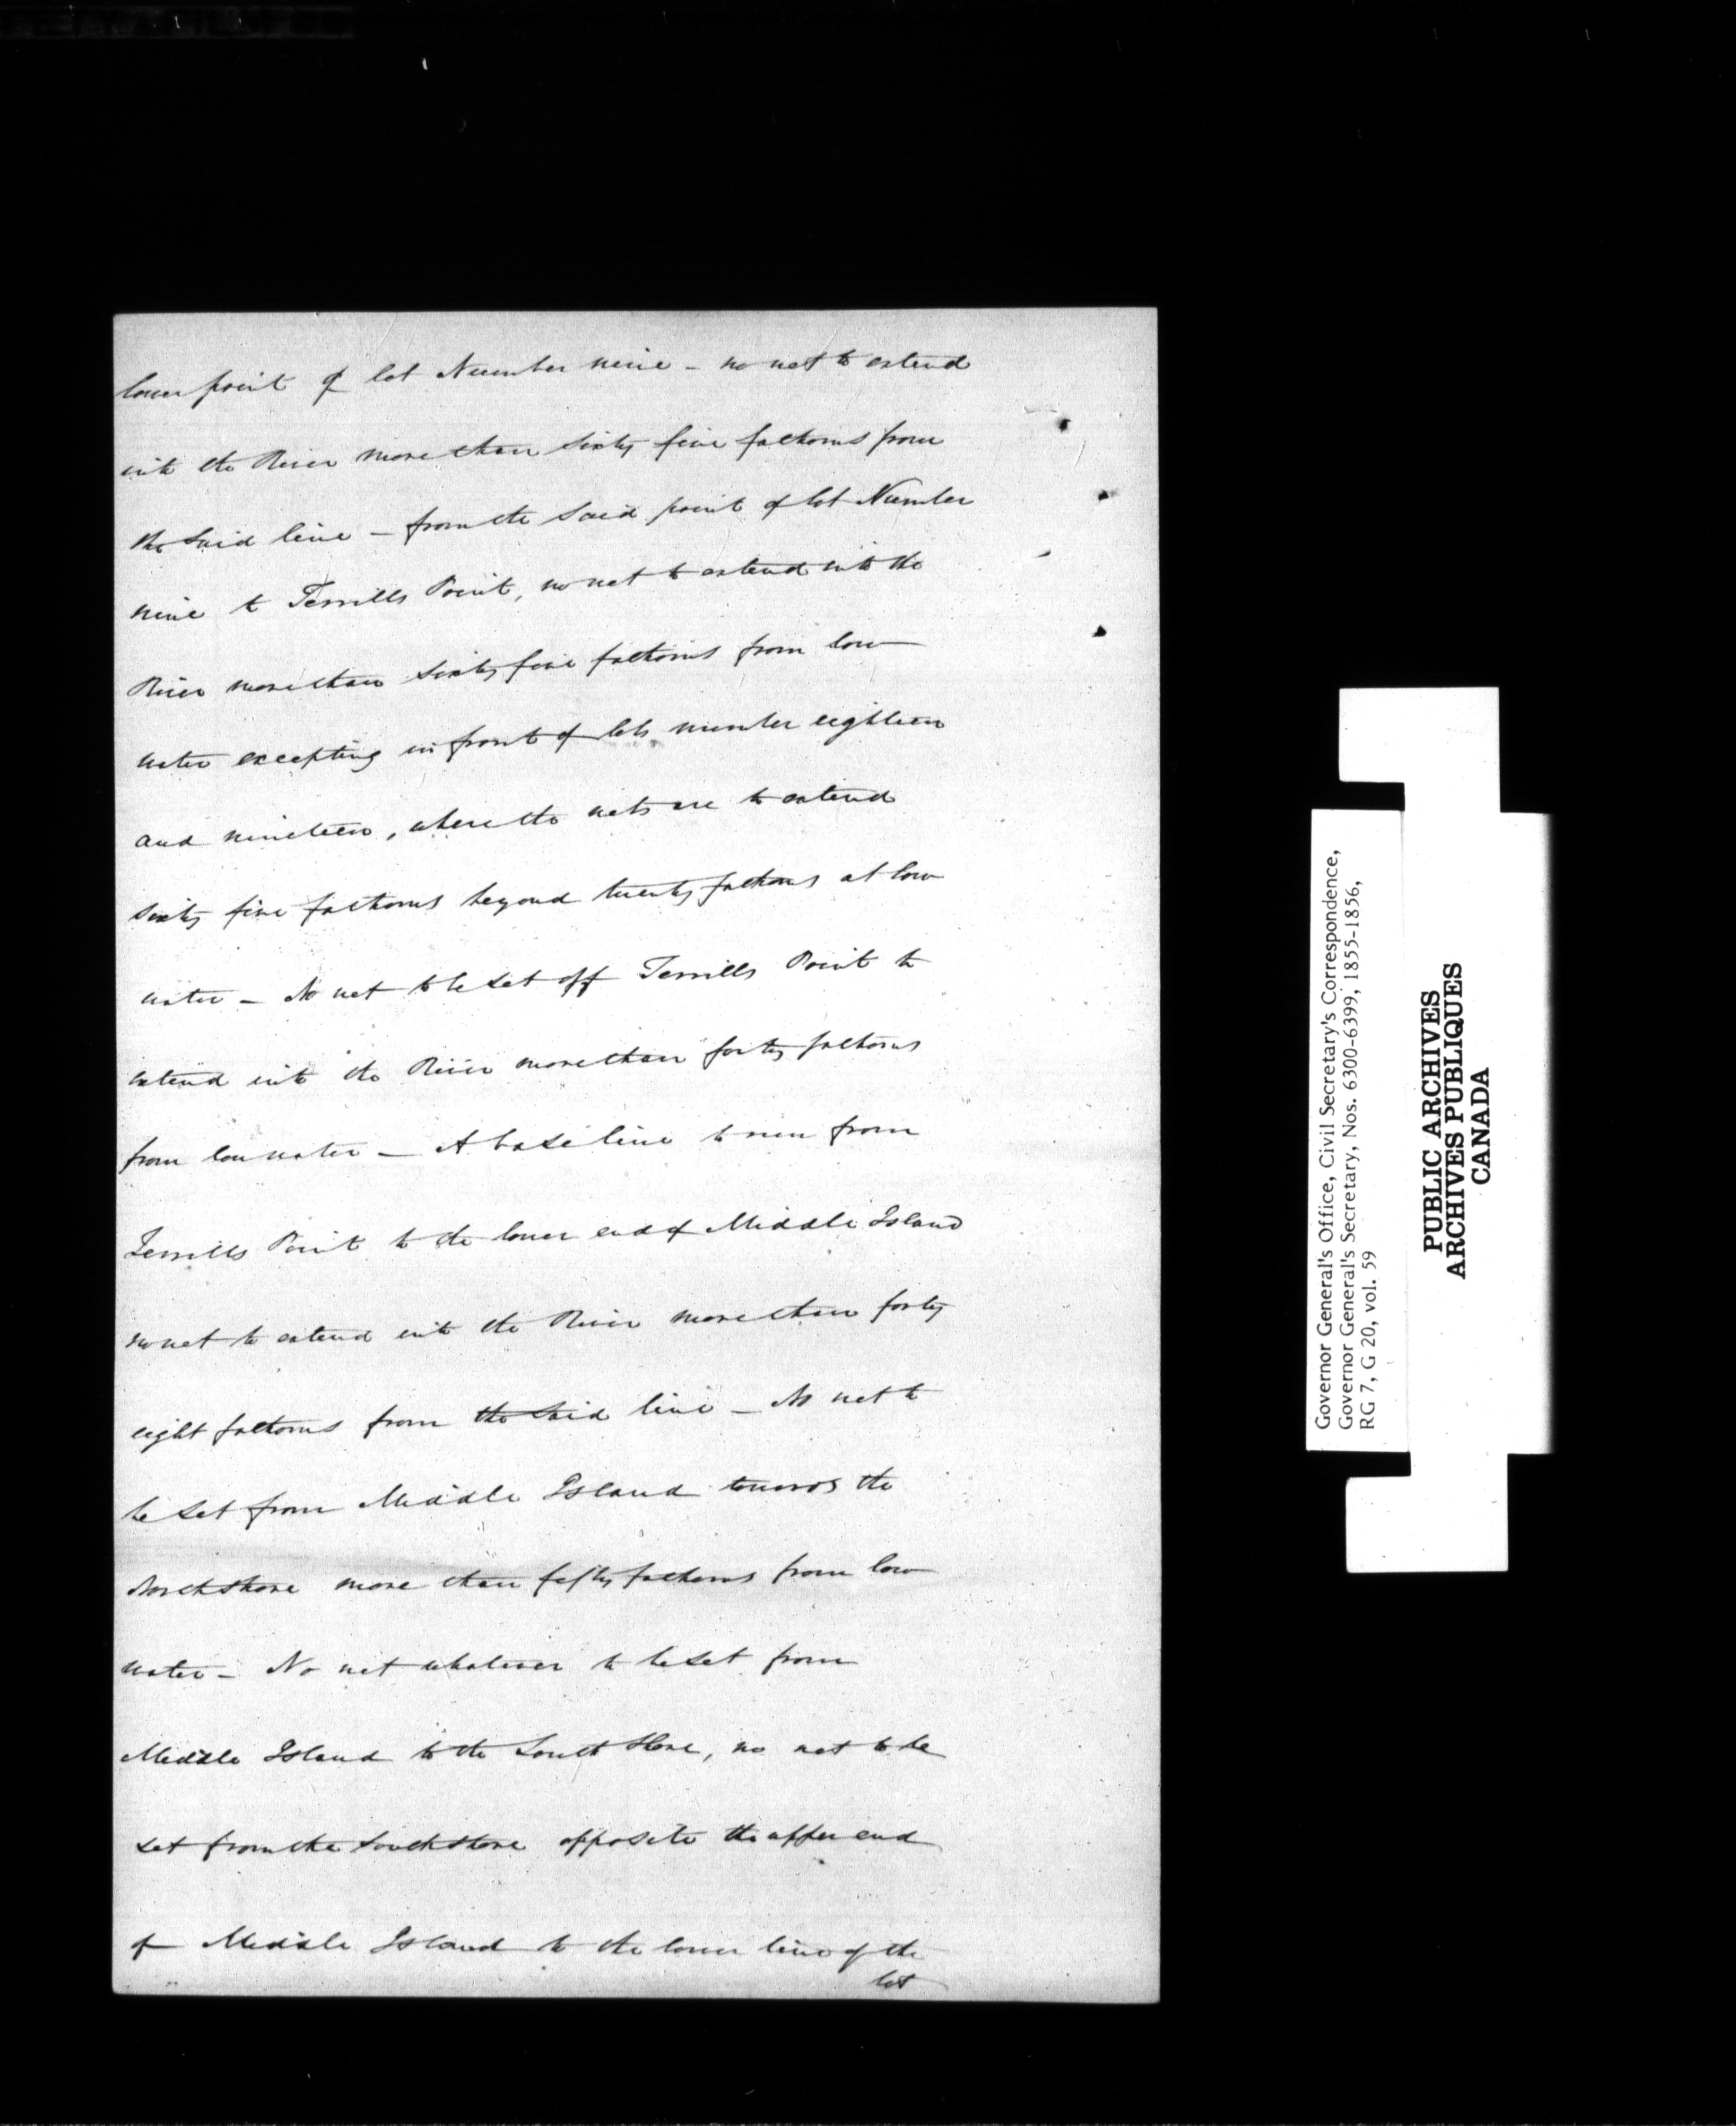 lower point of lot Number nine - no net to extend
into the River more than sixty five fathoms from
the said line - from the said point of lot Number
nine to Ferrills Point, no net to extend into the
River more than sixty five fathoms from low
water excepting in front of lots number eighteen
and nineteen, where the nets are to extend
sixty five fathoms beyond twenty fathoms at low
water - No net to be set off Ferrills Point to
extend into the River more than forty fathoms
from low water - A base line to run from
Ferrills Point to the lower end of Middle Island
no net to extend into the River more than forty
eight fathoms from the said line - No net to
be set from Middle Island towards the
North shore more than fifty fathoms from low
water - No net whatever to be set from
Middle Island to the South Shore, no net to be
set from the South shore opposite the upper end
of Middle Island to the lower line of the
lot
Governor General's Office, Civil Secretary's Correspondence,
Governor General's Secretary, Nos. 6300-6399, 1855-1856,
RG 7, G 20, vol. 59
PUBLIC ARCHIVES
ARCHIVES PUBLIQUES
CANADA